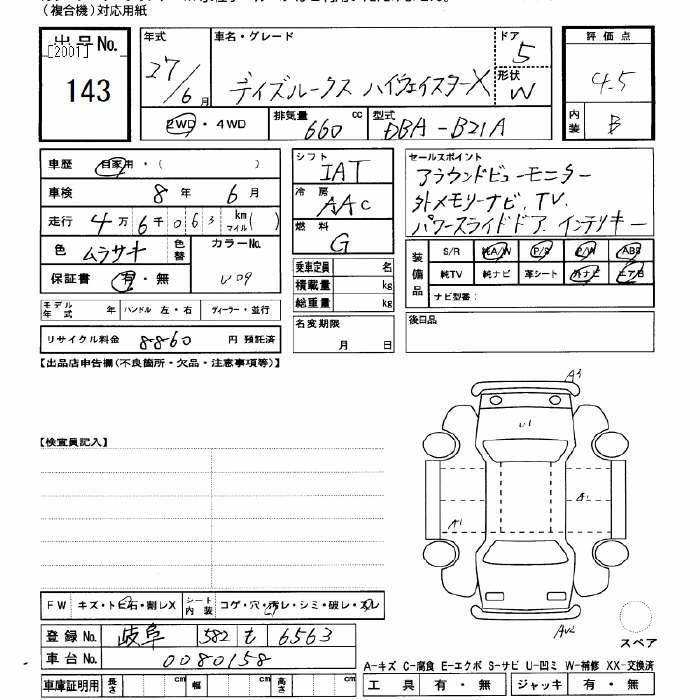 （複合機）対応用紙
出品No.
[2001]
143
年式 27/6月
車名・グレード デイズルークス ハイウェイスターX
ドア 5
形状 W
2WD・4WD
排気量 660 cc
型式 DBA-B21A
評価点 4.5
内装 B
車歴 自家用・（ ）
車検 8年 6月
走行 4万6千063 km マイル（ ）
色 ムラサキ 色替
カラーNo.
保証書 有・無
モデル年式 年 ハンドル 左・右 ディーラー・並行
リサイクル料金 8860 円 預託済
シフト IAT
冷房 AAC
燃料 G
乗車定員 名
積載量 kg
総重量 kg
名変期限
月 日
セールスポイント
アラウンドビューモニター
外メモリーナビ、TV、
パワースライドドア、インテリキー
装備品
S/R 純A/W P/S P/W ABS
純TV 純ナビ 革シート 外ナビ エアB
ナビ型番：
後日品
【出品店申告欄（不良箇所・欠品・注意事項等）】
【検査員記入】
A3
U1
A1
A1
AU2
スペア
FW キズ・トビ石・割レX
シート内装 コゲ・穴・汚レ・シミ・破レ・スレ
登録No. 岐阜 582 そ 6563
車台No. 0080158
車庫証明用 長さ cm 幅 cm 高さ cm
A-キズ C-腐食 E-エクボ S-サビ U-凹ミ W-補修 XX-交換済
工具 有・無 ジャッキ 有・無